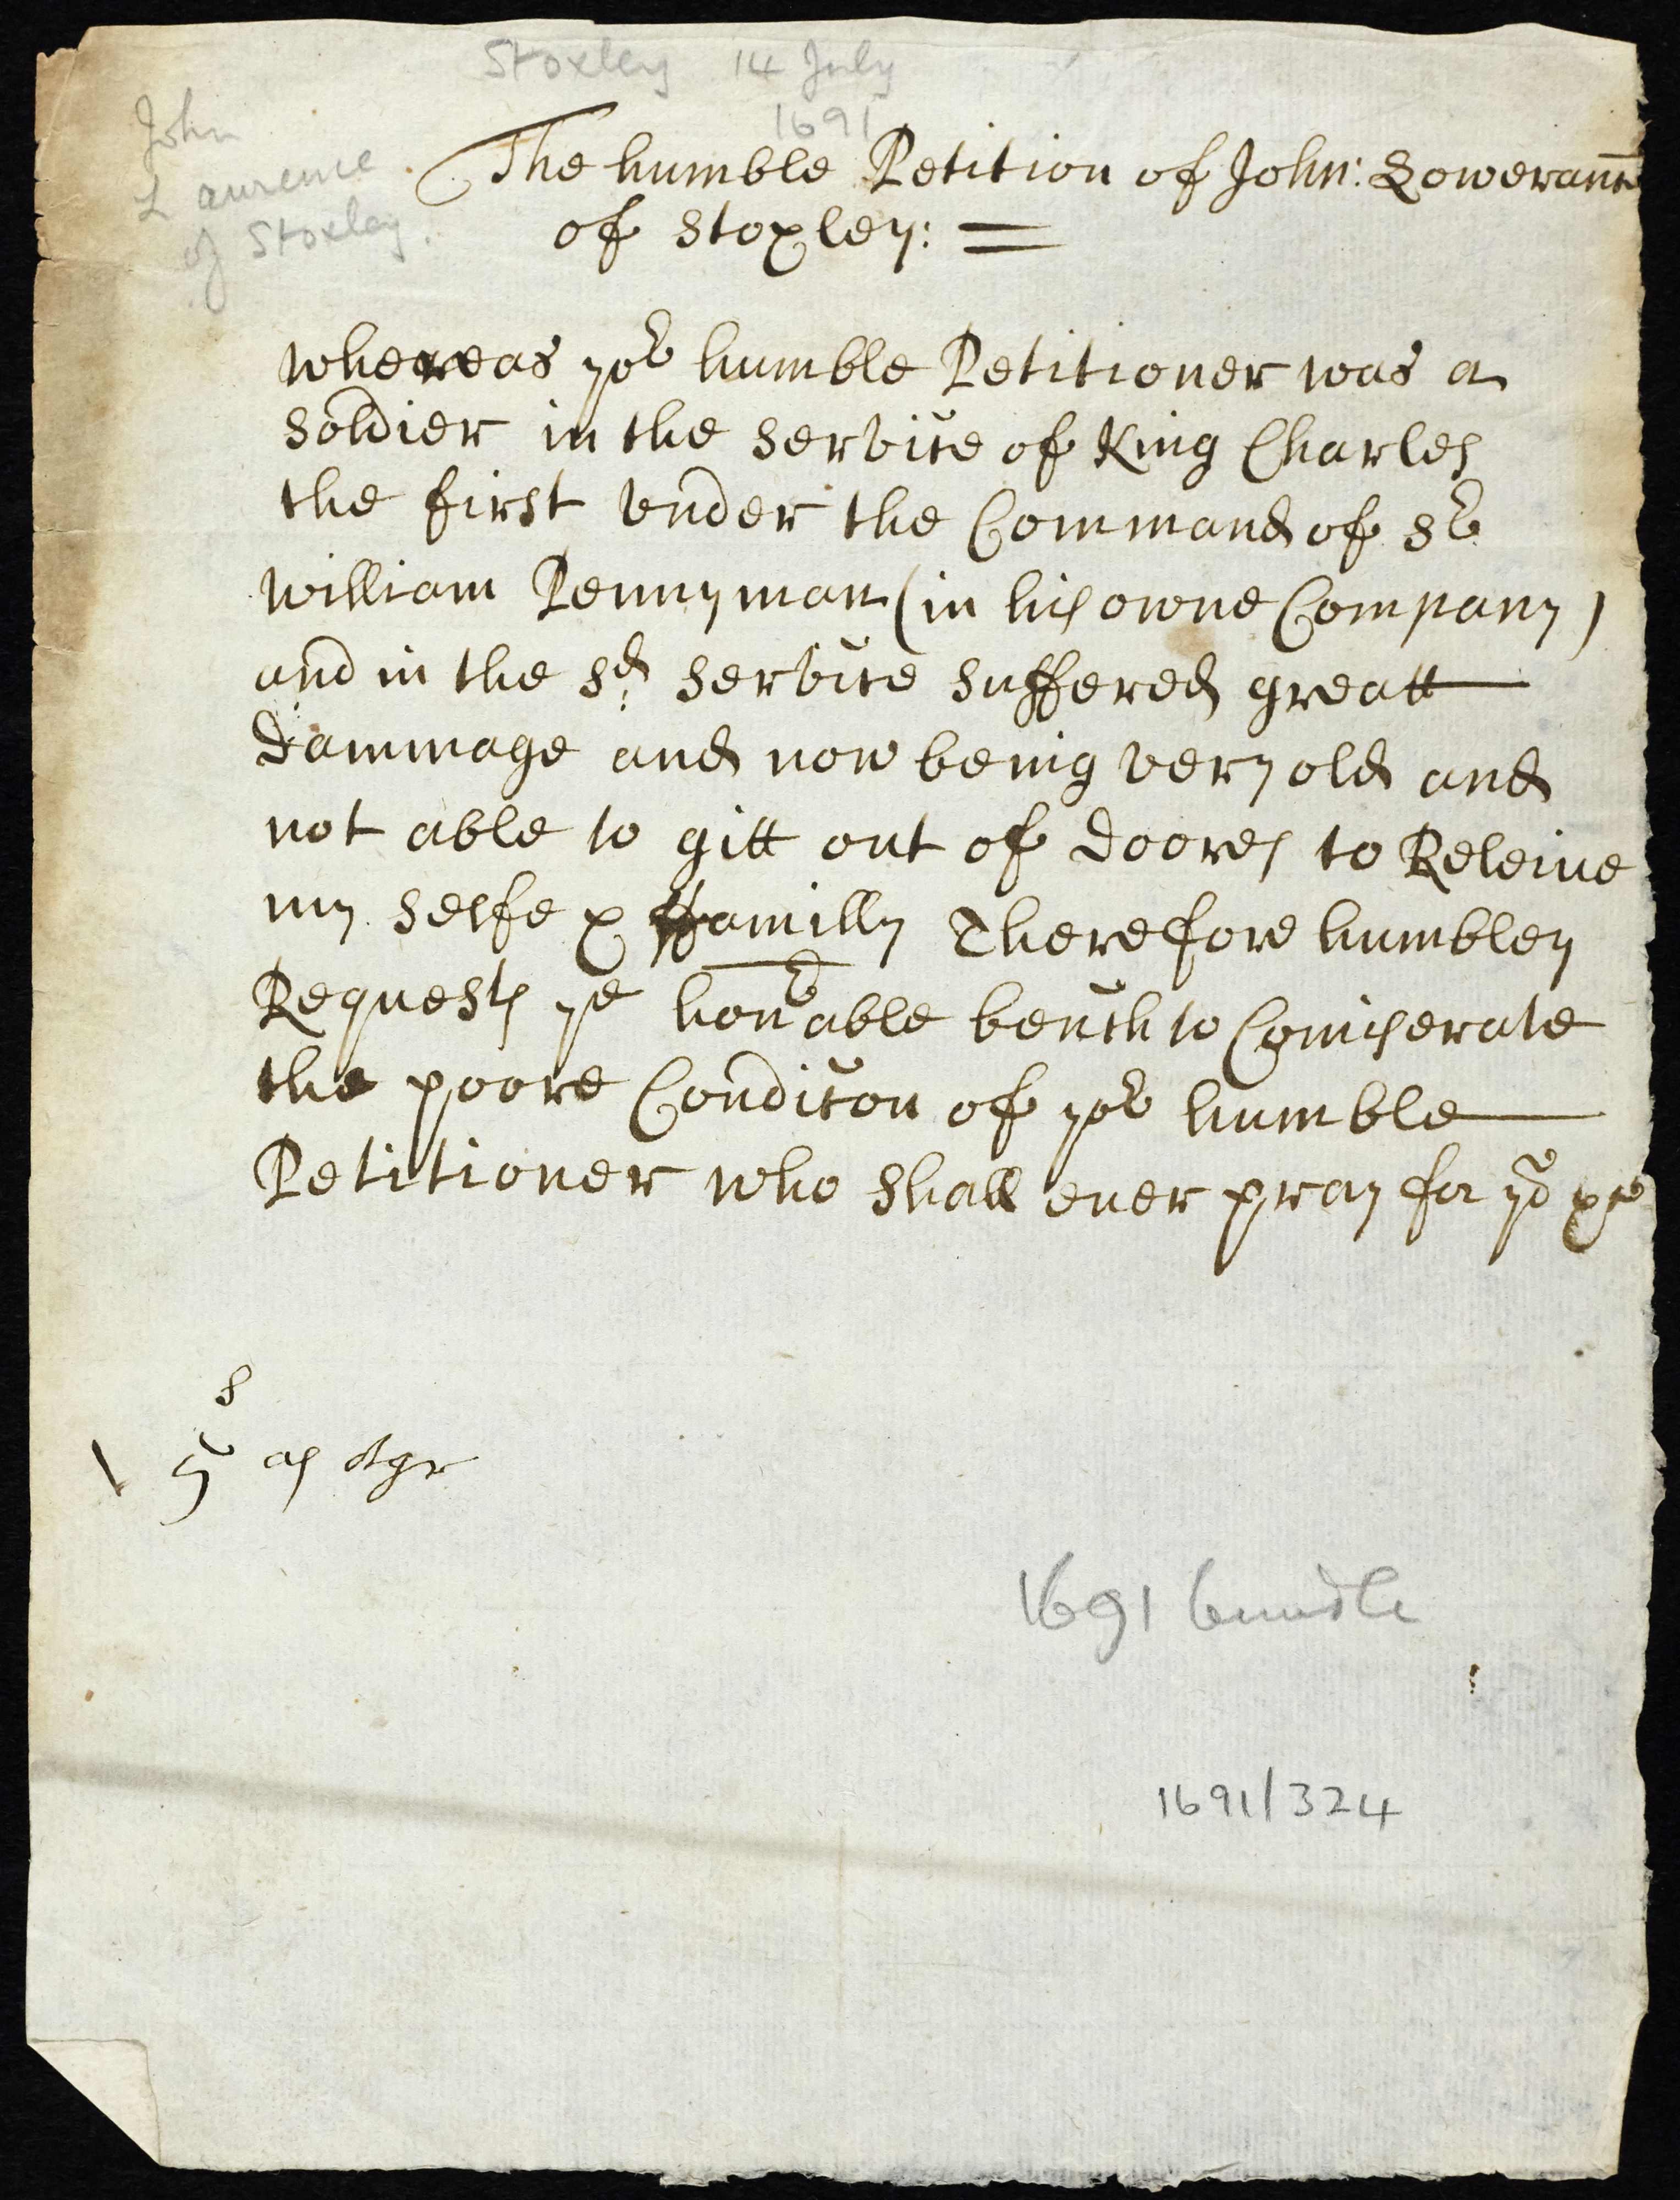 Stoxley 14 July
1691
John
Laurence
of Stoxley.
The humble Petition of John: Lowerance
of Stoxley: =
whereas yor humble Petitioner was a
Soldier in the Service of King Charles
the first vnder the Command of Sr
William Pennyman (in his owne Company)
and in the sd: Service suffered greatt
dammage and now being very old and
not able to gitt out of doores to Releive
my selfe & ffamilly Therefore humbley
Requests ye honrable bench to Comiserate
the poore Condicon of yor humble
Petitioner who shall ever pray for yo &c
s
5 as
1691 bundle
1691/324